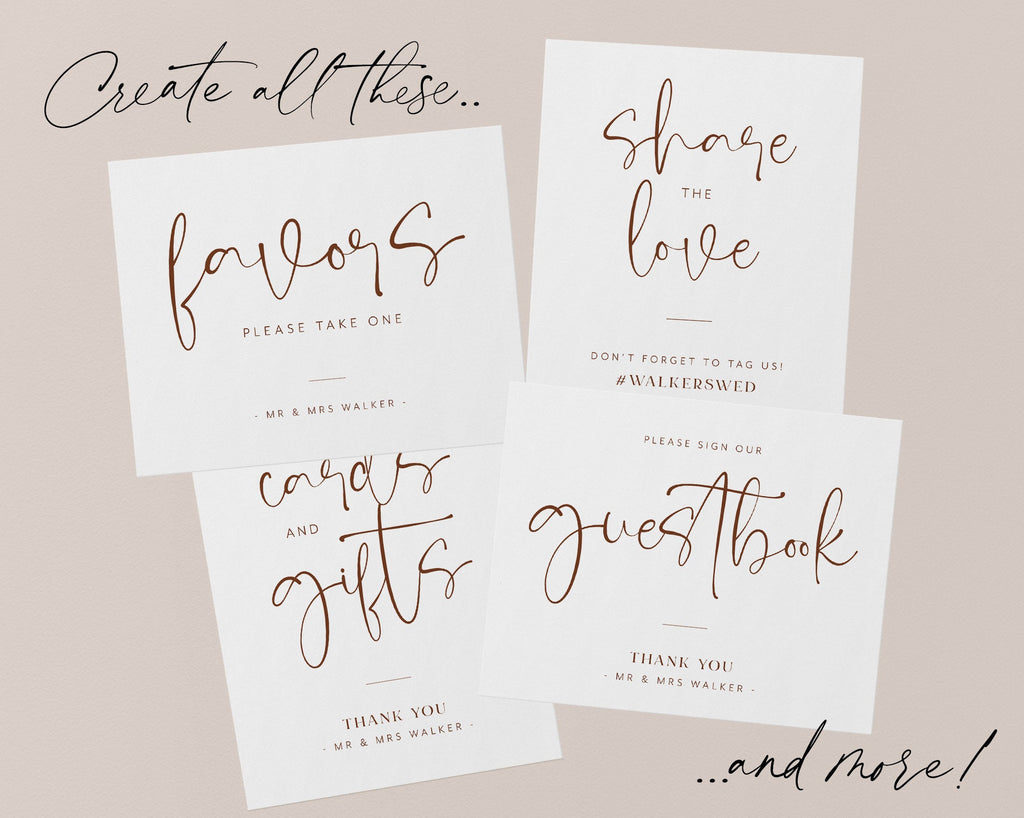 Create all these..
favors
PLEASE TAKE ONE
- MR & MRS WALKER -
share
THE
love
DON'T FORGET TO TAG US!
#WALKERSWED
cards
AND
gifts
THANK YOU
- MR & MRS WALKER -
PLEASE SIGN OUR
guestbook
THANK YOU
- MR & MRS WALKER -
...and more!